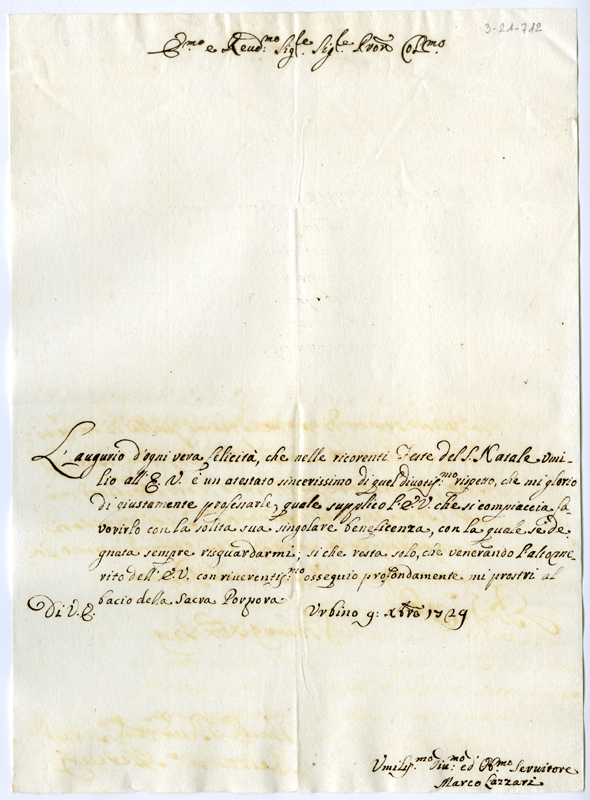 3-21-712
E.mo e Reud.mo Sig.re Sig.re Pron Col.mo
L'augurio d'ogni vera felicità, che nelle ricorenti Feste del S. Natale vmi
lio all'E. V. è un atestato sincerissimo di quel diuotis.mo rispetto, che mi glorio
di giustamente profesarle, quale supplico l'E.V. che si compiaccia fa
vorirlo con la solita sua singolare beneficenza, con la quale s'è de
gnata sempre risguardarmi; si che resta solo, che venerando l'alto me
rito dell'E.V. con riuerentis.mo osseguio profondamente mi prostri al
bacio della Sacra Porpora
Di V. E. Vrbino 9: Xbre 1729
Vmilis.mo Diu.mo ed Obb.mo Seruitore
Marco Lazzari